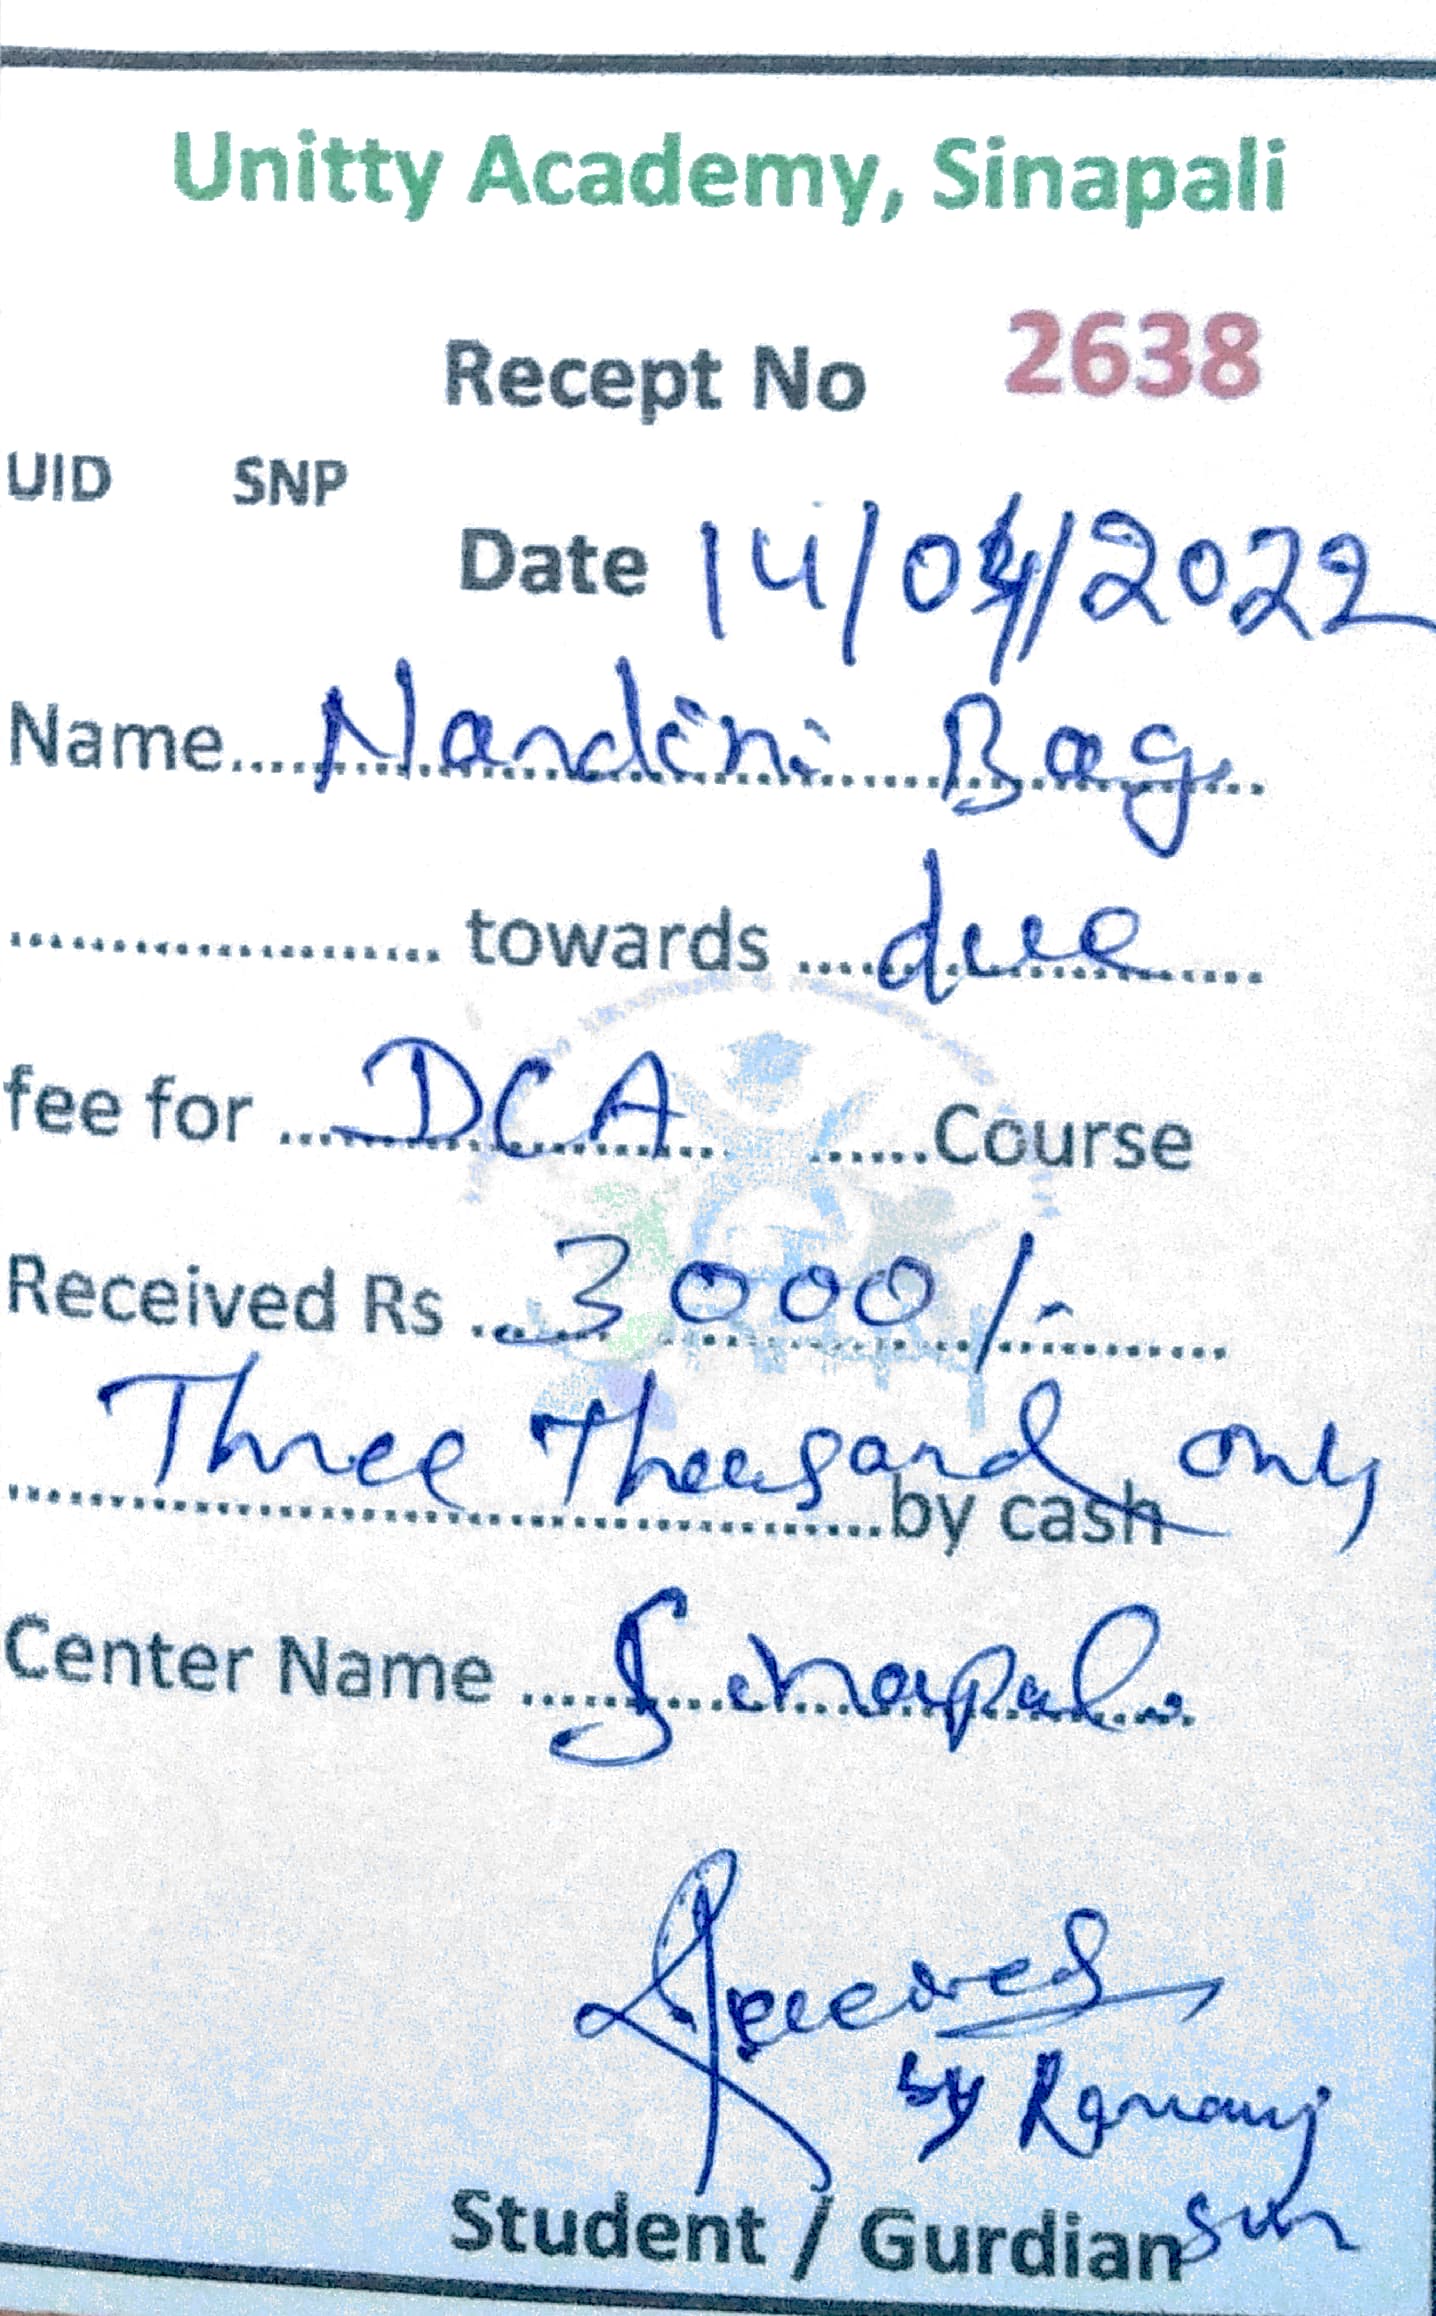 Unitty Academy, Sinapali
Recept No 2638
UID SNP
Date 14/04/2022
Name.....Nandini Bag
towards ....due
fee for ....DCA ......Course
Received Rs ....3000/-
Three Thousand only
by cash
Center Name ....Sinapali
Received
by Ramanuj
Sir
Student / Gurdian